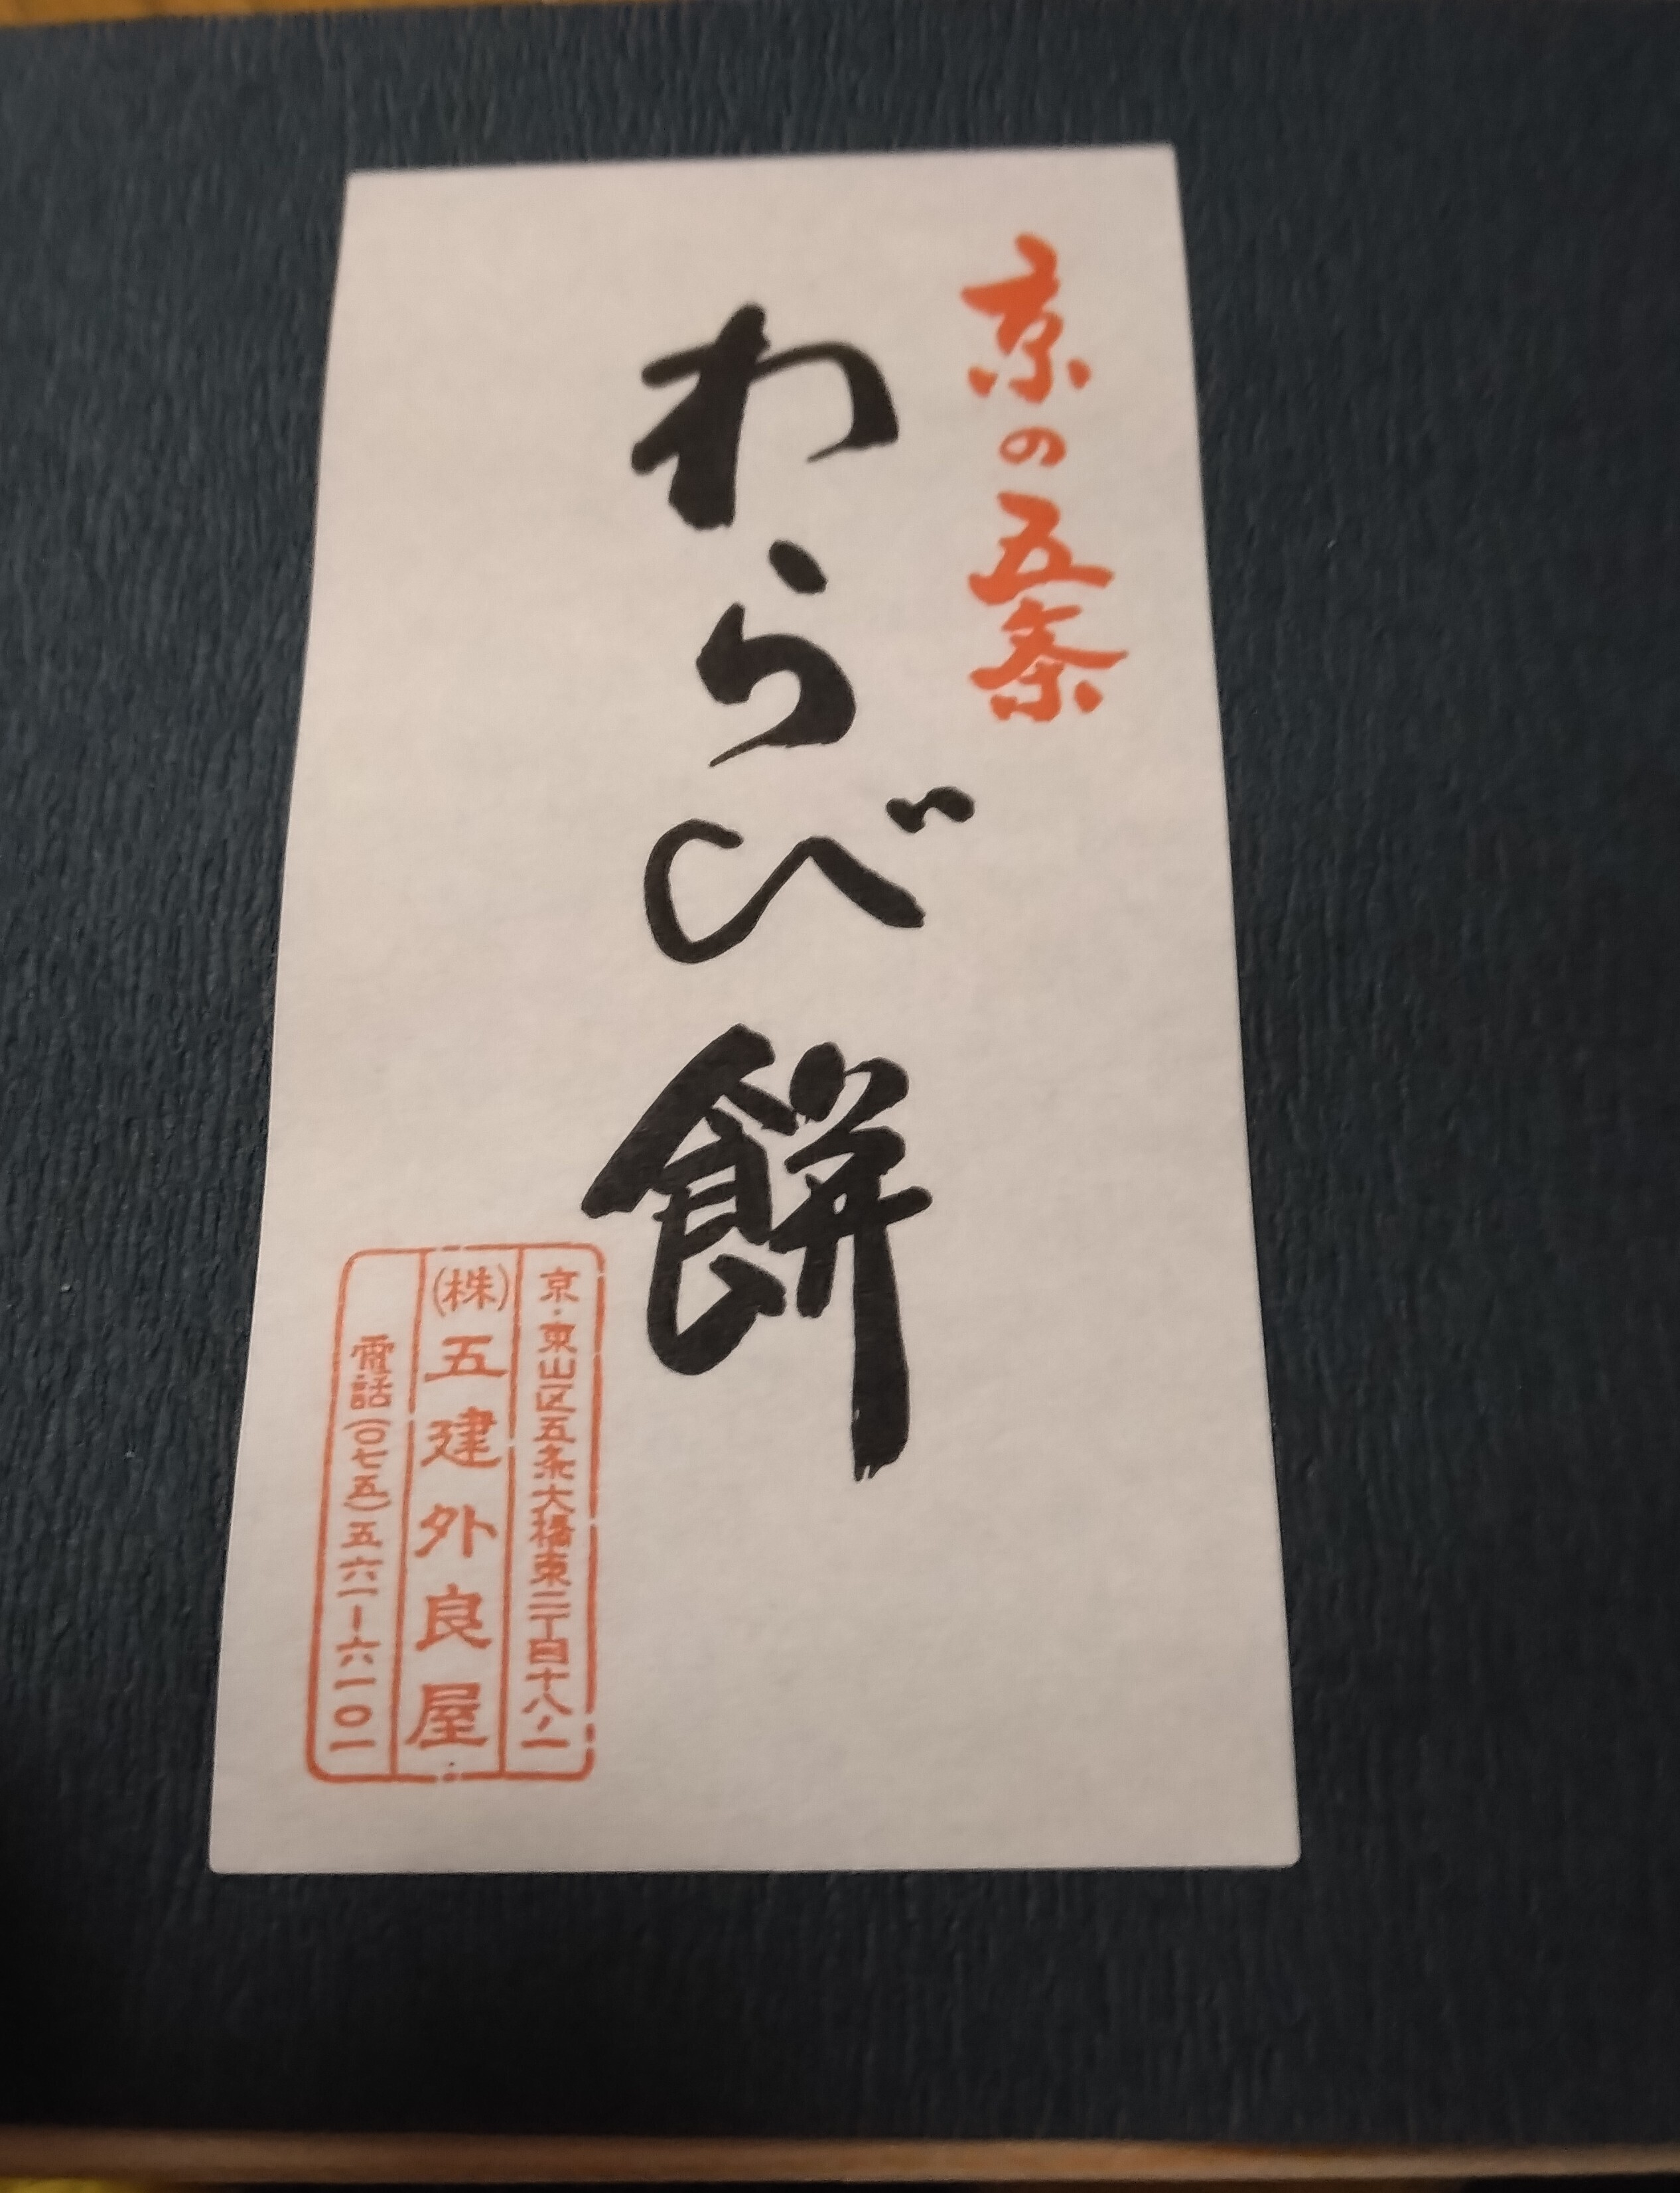 京の五条
わらび餅
京・東山区五条大橋東二丁目十八ノ一
(株)五建外良屋
電話(〇七五)五六一ー六一〇一